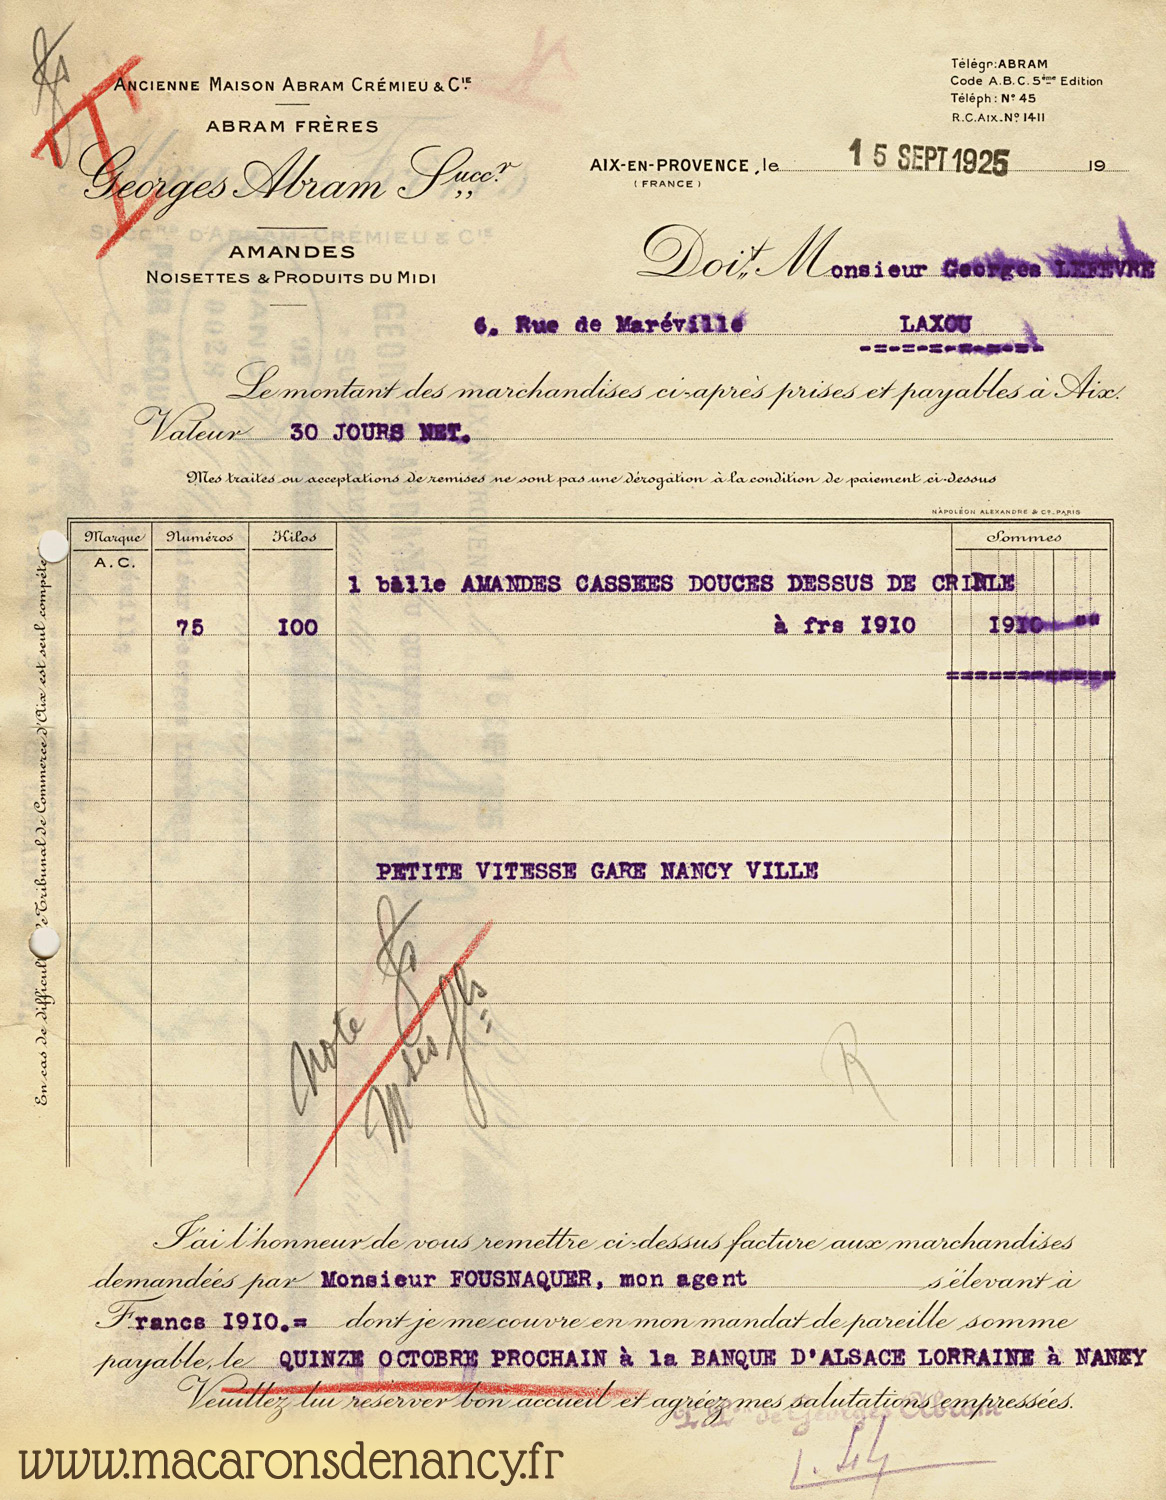 Ancienne Maison Abram Crémieu & Cie
ABRAM FRÈRES
Georges Abram Succr
AMANDES
NOISETTES & PRODUITS DU MIDI
Télégr: ABRAM
Code A.B.C. 5ème Edition
Téléph: Nº 45
R.C. AIX. Nº 1411
AIX-EN-PROVENCE, le 15 SEPT 1925 19
(FRANCE)
Doit Monsieur Georges LEFEVRE
6. Rue de Maréville LAXOU
Le montant des marchandises ci-après prises et payables à Aix.
Valeur 30 JOURS NET.
Mes traites ou acceptations de remises ne sont pas une dérogation à la condition de paiement ci-dessus
NAPOLÉON ALEXANDRE & Cº. PARIS
Marque Numéros Kilos Sommes
A.C.
1 balle AMANDES CASSEES DOUCES DESSUS DE CRIBLE
75 100 à frs 1910 1910 "
PETITE VITESSE GARE NANCY VILLE
note
R
En cas de difficul Tribunal de Commerce d'Aix est seul compéte
J'ai l'honneur de vous remettre ci-dessus facture aux marchandises
demandées par Monsieur FOUSNAQUER, mon agent s'élevant à
Francs 1910.= dont je me couvre en mon mandat de pareille somme
payable, le QUINZE OCTOBRE PROCHAIN à la BANQUE D'ALSACE LORRAINE à NANCY
Veuillez lui réserver bon accueil et agréez mes salutations empressées.
de Georges Abram
www.macaronsdenancy.fr